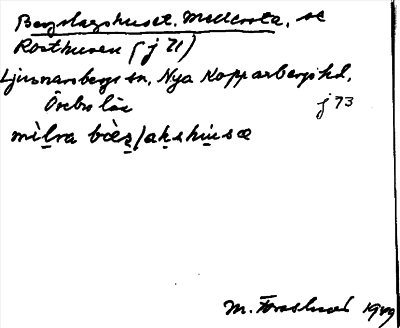 Bergslagshuset, Mellersta, se
Rosthusen (j 71)
Ljusnarsbergs sn, Nya Kopparbergs hd,
Örebro län j 73
mìlra bæ̀rs/lakshusæ
M. 1949